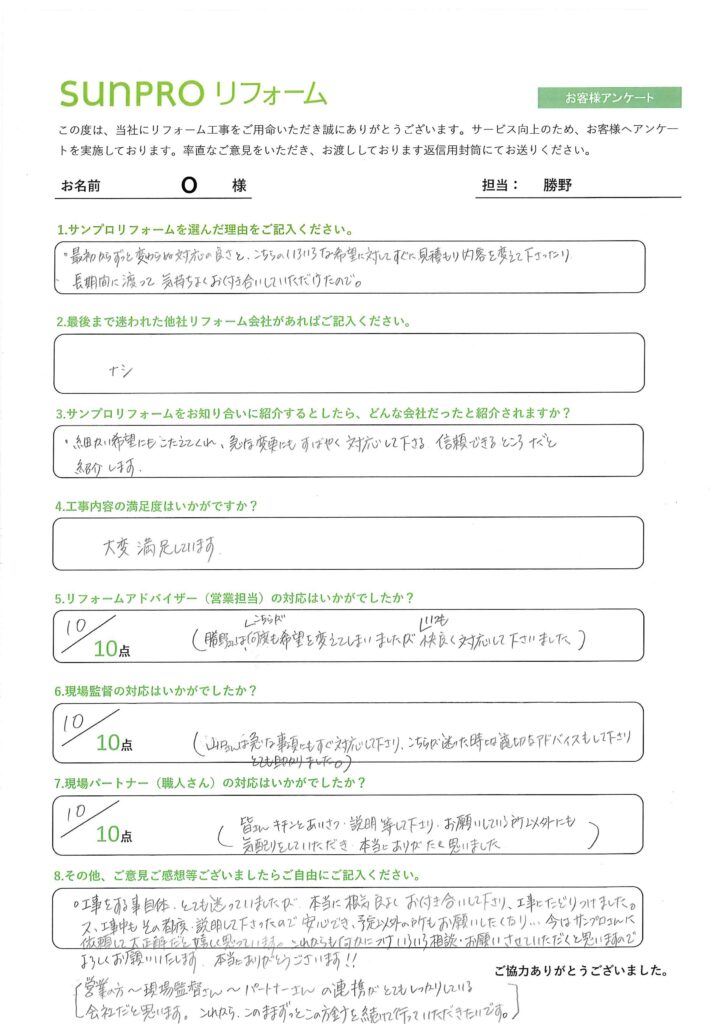 sunPRO リフォーム
お客様アンケート
この度は、当社にリフォーム工事をご用命いただき誠にありがとうございます。サービス向上のため、お客様へアンケー
トを実施しております。率直なご意見をいただき、お渡ししております返信用封筒にてお送りください。
お名前 O 様 担当： 勝野
1.サンプロリフォームを選んだ理由をご記入ください。
・最初からずっと変わらぬ対応の良さと、こちらのいろいろな希望に対してすぐに見積もり内容を変えて下さったり
長期間に渡って 気持ちよくお付き合いしていただけたので。
2.最後まで迷われた他社リフォーム会社があればご記入ください。
ナシ
3.サンプロリフォームをお知り合いに紹介するとしたら、どんな会社だったと紹介されますか？
・細かい希望にもこたえてくれ、急な変更にもすばやく対応して下さる 信頼できるところ だと
紹介します.
4.工事内容の満足度はいかがですか？
大変 満足しています.
5.リフォームアドバイザー（営業担当）の対応はいかがでしたか？
10/10点
こちらが いつも
(勝野さんは何度も希望を変えてしまいましたが 快良く対応して下さいました)
6.現場監督の対応はいかがでしたか？
10/10点
(山戸さんは急な事項にもすぐ対応して下さり、こちらが迷った時は適切なアドバイスもして下さり
とても助かりました。)
7.現場パートナー（職人さん）の対応はいかがでしたか？
10/10点
(皆さん キチンとあいさつ・説明 等して下さり・お願いしている所以外にも
気配りをしていただき・本当にありがたく思いました)
8.その他、ご意見ご感想等ございましたらご自由にご記入ください。
・工事をする事自体、とても迷っていましたが、本当に根気良くお付き合いして下さり、工事にたどりつけました。
又、工事中もその都度・説明して下さったので安心でき、予定以外の所もお願いしたくなり… 今はサンプロさんに
依頼して大正解だと嬉しく思っています。これからも何かにつけいろいろ相談・お願いさせていただくと思いますので
よろしくお願いいたします. 本当にありがとうございます!!
ご協力ありがとうございました。
[営業の方～現場監督さん～パートナーさん の連携がとてもしっかりしている
会社だと思います。これから、このままずっとこの方針を続けて行っていただきたいです。]